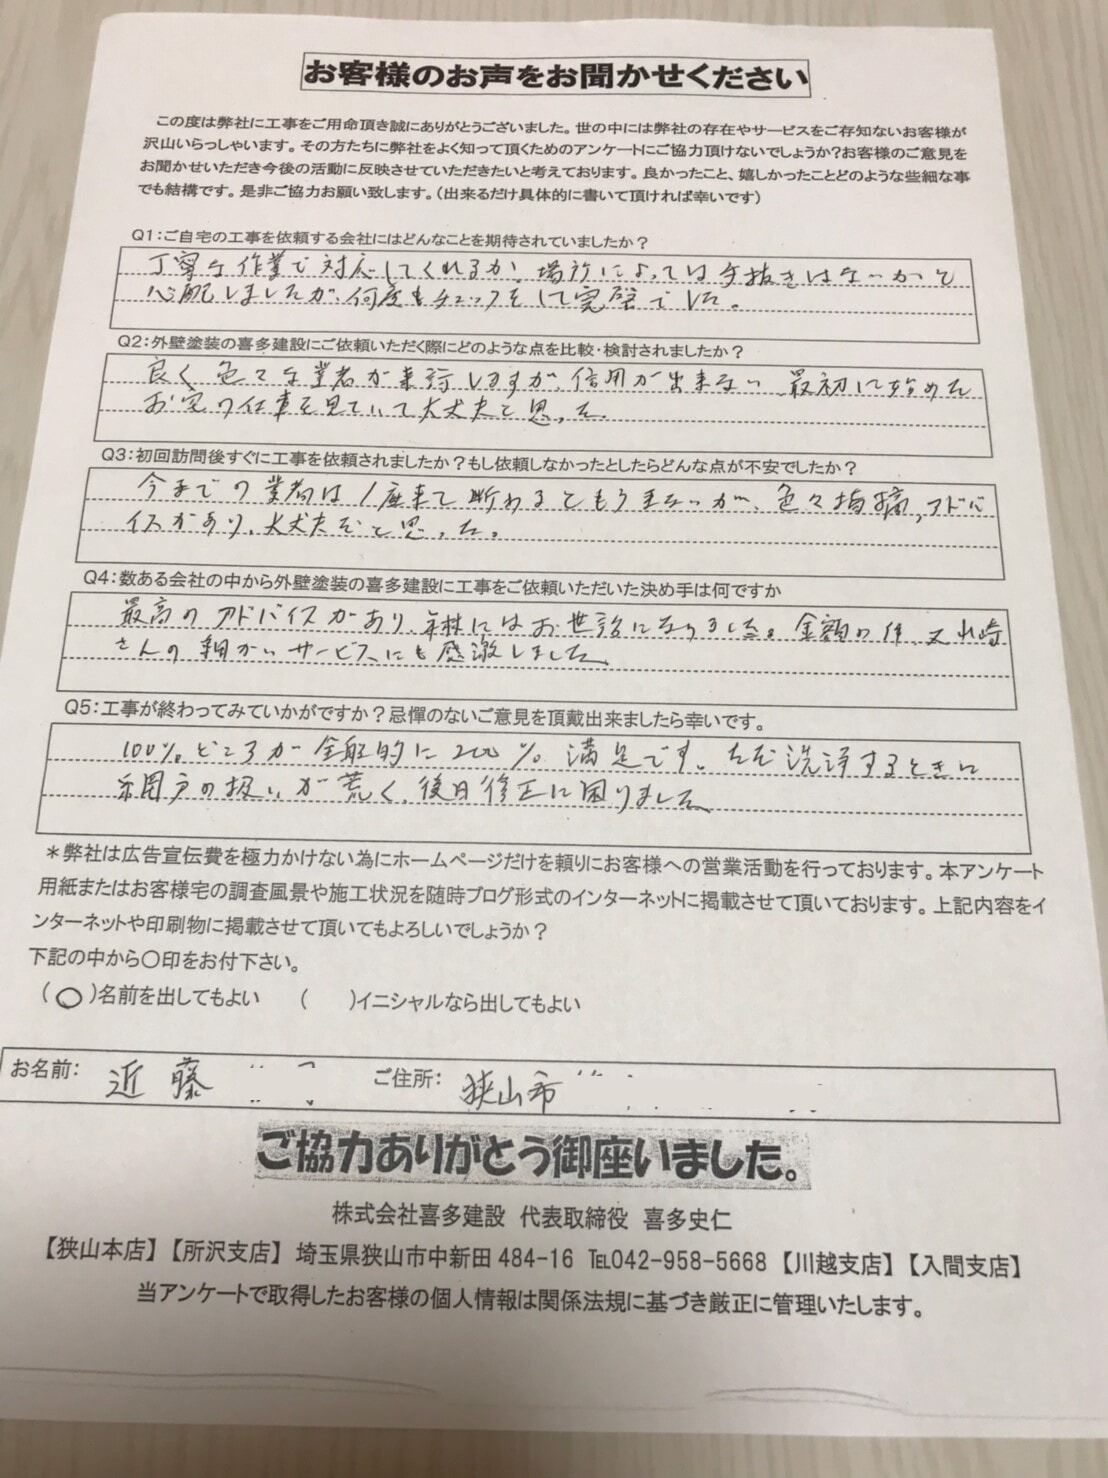 お客様のお声をお聞かせください
この度は弊社に工事をご用命頂き誠にありがとうございました。世の中には弊社の存在やサービスをご存知ないお客様が
沢山いらっしゃいます。その方たちに弊社をよく知って頂くためのアンケートにご協力頂けないでしょうか?お客様のご意見を
お聞かせいただき今後の活動に反映させていただきたいと考えております。良かったこと、嬉しかったことどのような些細な事
でも結構です。是非ご協力お願い致します。(出来るだけ具体的に書いて頂ければ幸いです)
Q1:ご自宅の工事を依頼する会社にはどんなことを期待されていましたか?
丁寧な作業で対応してくれるか、場所によっては手抜きはないかと
心配しましたが、何度もチェックをして完璧でした。
Q2:外壁塗装の喜多建設にご依頼いただく際にどのような点を比較・検討されましたか?
良く色々な業者が来訪しますが、信用が出来ない、最初に始めた
お宅の仕事を見ていて大丈夫と思った。
Q3:初回訪問後すぐに工事を依頼されましたか?もし依頼しなかったとしたらどんな点が不安でしたか?
今までの業者は1度来て断わるともう来ないが、色々指摘、アドバ
イスがあり、大丈夫だと思った。
Q4:数ある会社の中から外壁塗装の喜多建設に工事をご依頼いただいた決め手は何ですか
最高のアドバイスがあり、にはお世話になりました。金額の件、又
さんの細かいサービスにも感激しました
Q5:工事が終わってみていかがですか?忌憚のないご意見を頂戴出来ましたら幸いです。
100%どころか全般的に200%満足です。ただ洗浄するときに
網戸の扱いが荒く、後日修正に困りました
*弊社は広告宣伝費を極力かけない為にホームページだけを頼りにお客様への営業活動を行っております。本アンケート
用紙またはお客様宅の調査風景や施工状況を随時ブログ形式のインターネットに掲載させて頂いております。上記内容をイ
ンターネットや印刷物に掲載させて頂いてもよろしいでしょうか?
下記の中から〇印をお付下さい。
(〇)名前を出してもよい ( )イニシャルなら出してもよい
お名前: 近藤 ご住所: 狭山市
ご協力ありがとう御座いました。
株式会社喜多建設 代表取締役 喜多史仁
【狭山本店】【所沢支店】埼玉県狭山市中新田484-16 ℡042-958-5668【川越支店】【入間支店】
当アンケートで取得したお客様の個人情報は関係法規に基づき厳正に管理いたします。